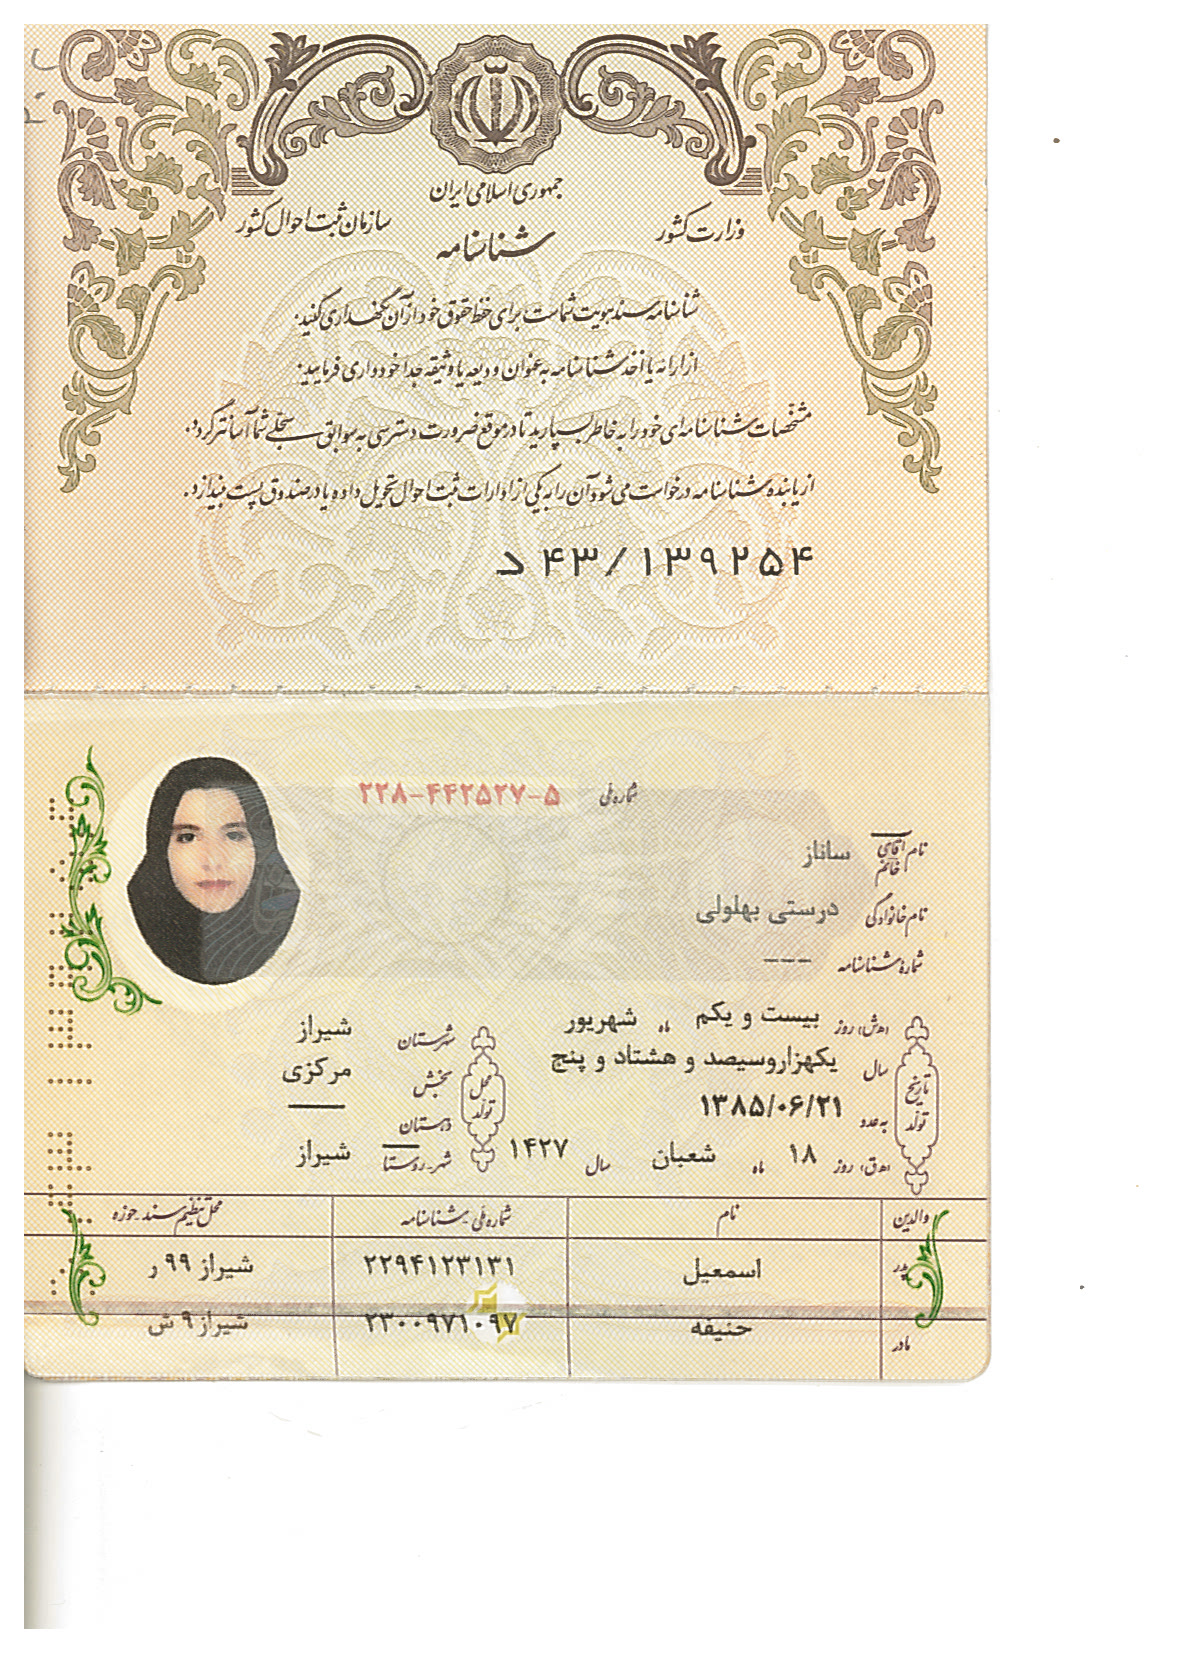 جمهوری اسلامی ایران
وزارت کشور
سازمان ثبت احوال کشور
شناسنامه
شناسنامه سند هویت شماست برای حفظ حقوق خود از آن نگهداری کنید.
از ارائه یا اخذ شناسنامه به عنوان ودیعه یا وثیقه جدا خودداری فرمایید.
مشخصات شناسنامه‌ای خود را به خاطر بسپارید تا در موقع ضرورت دسترسی به سوابق سجلی شما آسانتر گردد.
از یابنده شناسنامه درخواست می‌شود آن را به یکی از ادارات ثبت احوال تحویل داده یا در صندوق پست بیندازد.
د ۴۳/۱۳۹۲۵۴
شماره ملی ۲۲۸-۴۴۲۵۲۷-۵
نام آقای خانم ساناز
نام خانوادگی درستی بهلولی
شماره شناسنامه ---
تاریخ تولد
(ه.ش) روز بیست و یکم ماه شهریور
سال یکهزاروسیصد و هشتاد و پنج
به عدد ۱۳۸۵/۰۶/۲۱
(ه.ق) روز ۱۸ ماه شعبان سال ۱۴۲۷
محل تولد
شهرستان شیراز
بخش مرکزی
دهستان ـــــ
شهر-روستا شیراز
والدین نام شماره ملی-شناسنامه محل تنظیم سند-حوزه
پدر اسمعیل ۲۲۹۴۱۲۳۱۳۱ شیراز ۹۹ ر
مادر حنیفه ۲۳۰۰۹۷۱۰۹۷ شیراز ۹ ش